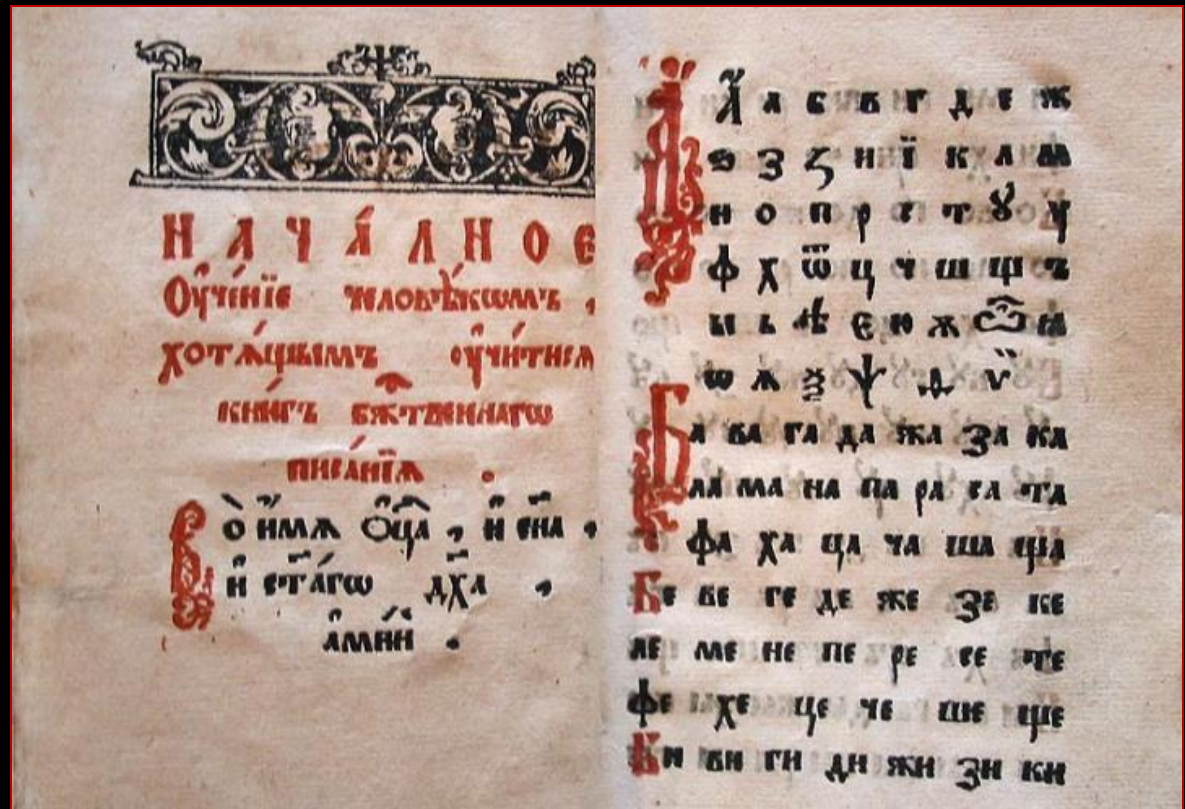 НАЧА́ЛНОЕ
Оуче́нїе человѣ́кѡмъ ,
хотѧ́щымъ оучи́тисѧ
кни́гъ бж҃твеннагѡ
писа́нїѧ .
Во и҆́мѧ Ѻ҆ц҃а , и҆ сн҃а ,
и҆ ст҃а́гѡ дх҃а ,
а҆ми́нь .
А҆ а б в г д е ж
ѕ з ꙁ и ї к л м
н о п р с т ꙋ у
ф х ѿ ц ч ш щ ъ
ы ь ѣ є ю ж ѽ ꙗ
ѡ ѧ ѯ ѱ ѳ ѵ̈
Ба ва га да жа за ка
ла ма на па ра са та
фа ха ца ча ша ща
Бе ве ге де же зе ке
ле ме не пе ре се те
фе хе це че ше ще
Би ви ги ди жи зи ки